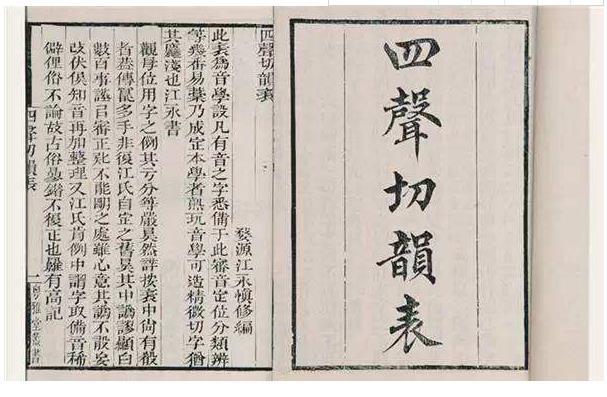 四聲切韻表
四聲切韻表
婺源江永慎修編
此表爲音學設凡有音之字悉備于此審音定位分類辨
等幾番易藁乃成定本學者熟玩音學可造精微切字猶
其麤淺也江永書
觀母位用字之例其亏分等嚴矣然詳按表中尙有殽
者葢傳寫多手非復江氏自定之舊矣其中譌謬顯白
數百事謹㠯審正疑不能剛之處雖心意其譌不敢妄
改伏俟知音再加整理又江氏𠔃例中謂字取備音稀
僻俚俗不論故古俗錯不復正也雁有高記
四聲切韻表
一
粵雅堂叢書